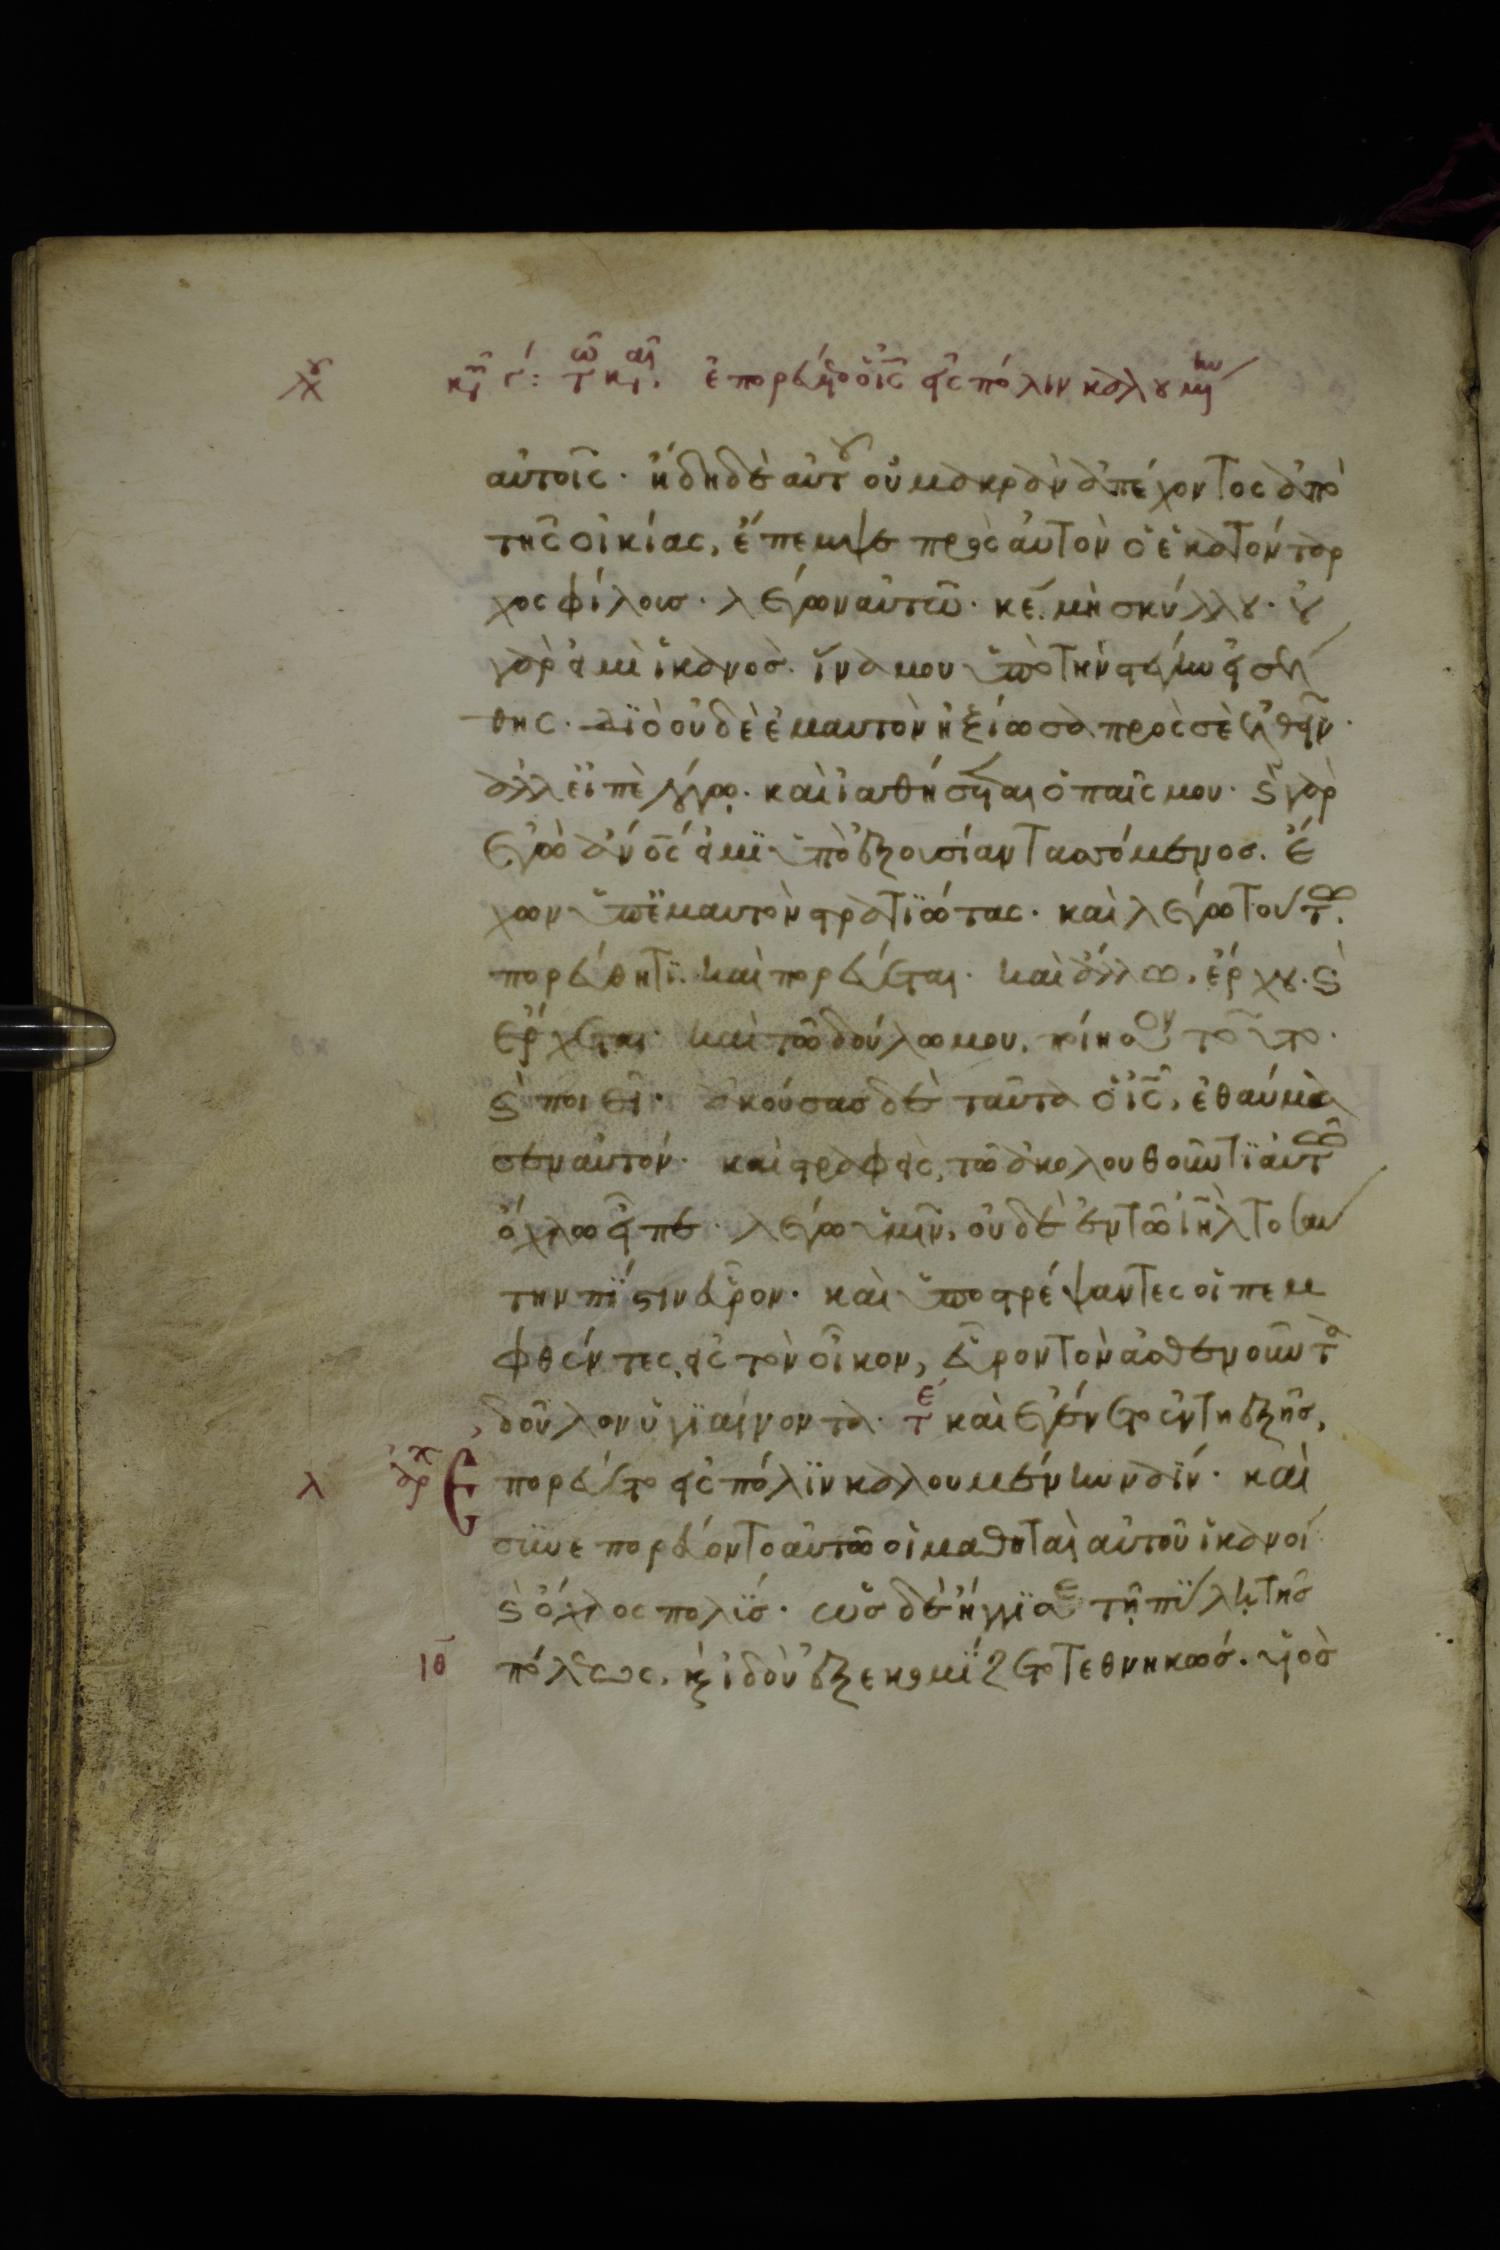 κυ γ: τω και. επορεύετο ὁ ις εἰς πόλιν καλουμένην
αὐτοῖς· ἤδη δὲ αὐτοῦ οὐ μακρὰν ἀπέχοντος ἀπὸ
τῆς οἰκίας, ἔπεμψε πρὸς αὐτὸν ὁ ἑκατόνταρ
χος φίλους· λέγων αὐτῶ· κε. μὴ σκύλλου· οὐ
γὰρ εἰμὶ ἱκανὸς. ἵνα μου ὑπὸ τὴν στέγην εἰσέλ
θης· διὸ οὐδὲ ἐμαυτὸν ἠξίωσα πρὸς σὲ ἐλθεῖν·
ἀλλ εἰπὲ λόγω. καὶ ἰαθήσεται ὁ παῖς μου· καὶ γὰρ
ἐγὼ ἄνος εἰμὶ ὑπὸ ἐξουσίαν τασσόμενος. ἔ
χων ὑπ ἐμαυτὸν στρατιώτας· καὶ λέγω τούτω.
πορεύθητι. καὶ πορεύεται· καὶ ἄλλω. ἔρχου· καὶ
ἔρχεται· καὶ τῶ δούλω μου, ποίησον τοῦτο·
καὶ ποιεῖ· ἀκούσας δὲ ταῦτα ὁ ις, ἐθαύμα
σεν αὐτόν· καὶ στραφεὶς, τῶ ἀκολουθοῦντι αὐτῶ
ὄχλω εἶπε· λέγω ὑμῖν, οὐδὲ ἐν τῶ ιηλ τοσαύ
την πίστιν εὗρον· καὶ ὑποστρέψαντες οἱ πεμ
φθέντες εἰς τὸν οἶκον, εὗρον τὸν ἀσθενοῦντα
δοῦλον ὑγιαίνοντα· τε καὶ ἐγένετο ἐν τῆ ἑξῆς,
λ αρχ ἐπορεύετο εἰς πόλιν καλουμένην ναΐν· καὶ
συνεπορεύοντο αὐτῶ οἱ μαθηταὶ αὐτοῦ ἱκανοί
καὶ ὄχλος πολύς· ὡς δὲ ἤγγισε τῆ πύλη τῆς
ιθ πόλεως, καὶ ἰδοὺ ἐξεκομίζετο τεθνηκώς. υἱὸς